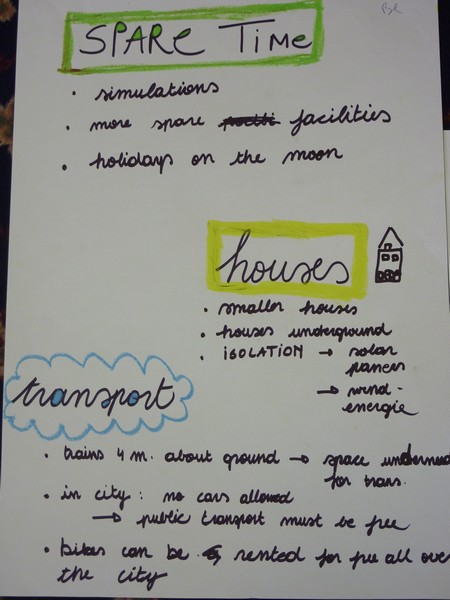 Be
SPARE TIME
• simulations
• more spare facilities
• holidays on the moon
houses
• smaller houses
• houses underground
• iSOLATiON → solar
panels
→ wind-
energie
transport
• trains 4 m. about ground → space
for trans.
• in city: no cars allowed
→ public transport must be free
• bikes can be rented for free all over
the city